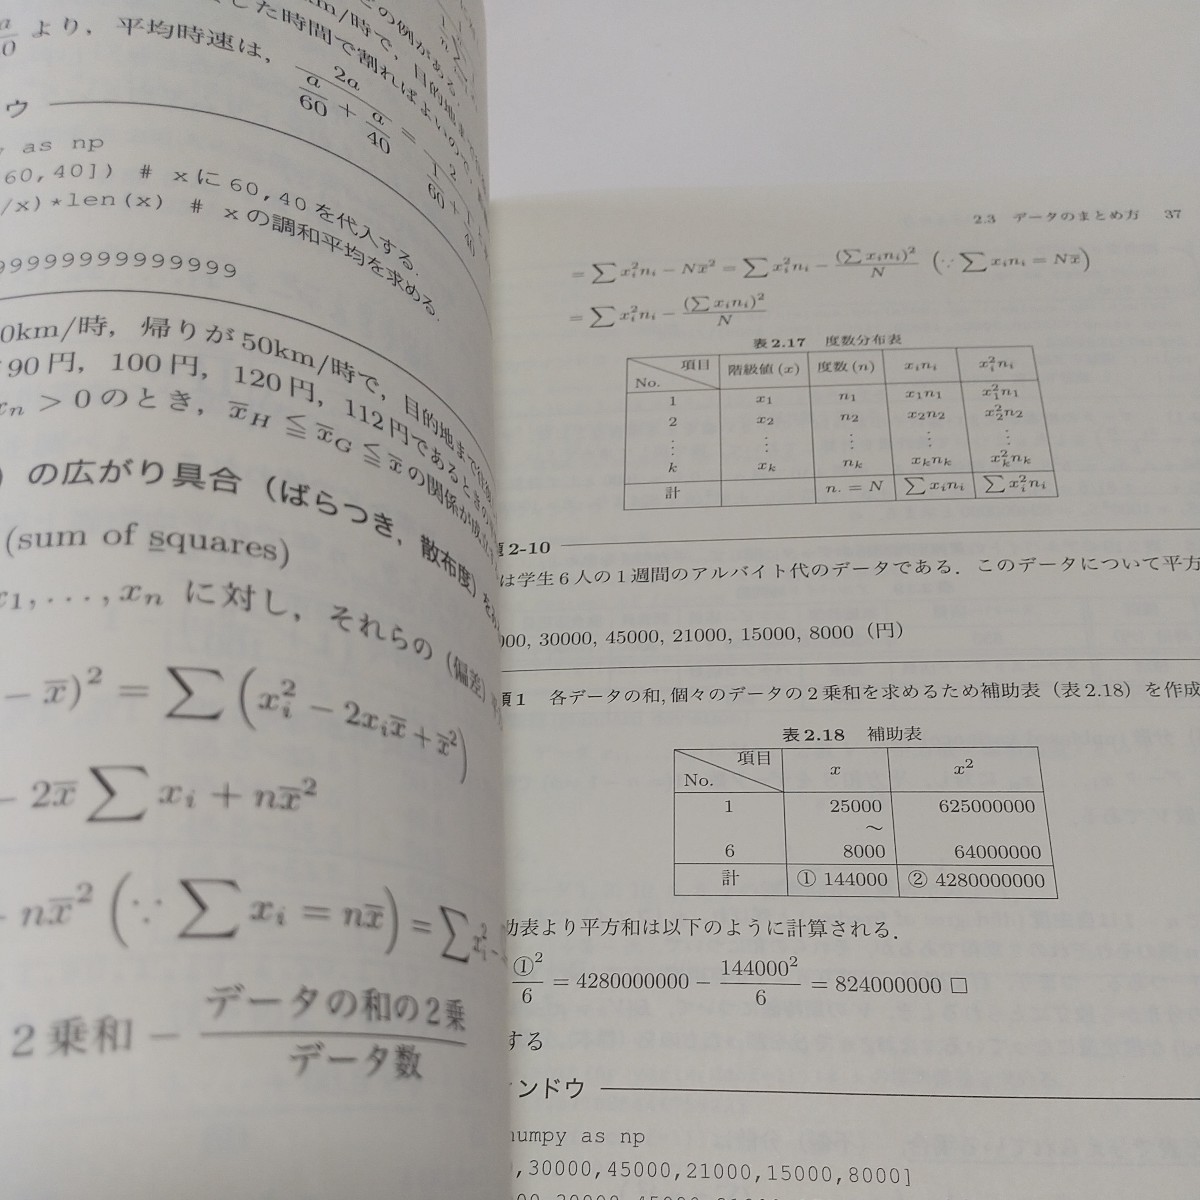 の例がある.
km/時で, 目的地ま
した時間で割ればよいので,
より, 平均時速は, 2a / (a/60 + a/40) = 2 / (1/60 + 1/40)
ウ
as np
60,40]) # xに60,40を代入する.
/x)*len(x) # xの調和平均を求める.
99999999999999
0km/時, 帰りが50km/時で, 目的地まで
90円, 100円, 120円, 112円であるときの
xn > 0のとき, x̄H ≦ x̄G ≦ x̄ の関係が成
) の広がり具合 (ばらつき, 散布度)
(sum of squares)
x1, . . . , xn に対し, それらの (偏差)
− x̄)² = ∑ (xi² − 2xix̄ + x̄²)
− 2x̄ ∑ xi + nx̄²
nx̄² (∵ ∑ xi = nx̄) = ∑ xi²
2乗和 − データの和の2乗 / データ数
2.3 データのまとめ方 37
= ∑ xi²ni − Nx̄² = ∑ xi²ni − (∑ xini)² / N (∵ ∑ xini = Nx̄)
= ∑ xi²ni − (∑ xini)² / N
表2.17 度数分布表
No. 項目 階級値(x) 度数(n) xini xi²ni
1 x1 n1 x1n1 x1²n1
2 x2 n2 x2n2 x2²n2
⋮ ⋮ ⋮ ⋮ ⋮
k xk nk xknk xk²nk
計 n. = N ∑ xini ∑ xi²ni
題2-10
は学生6人の1週間のアルバイト代のデータである. このデータについて平方
000, 30000, 45000, 21000, 15000, 8000 (円)
1 各データの和, 個々のデータの2乗和を求めるため補助表 (表2.18) を作成
表2.18 補助表
No. 項目 x x²
1 25000 625000000
〜
6 8000 64000000
計 ① 144000 ② 4280000000
助表より平方和は以下のように計算される.
①² / 6 = 4280000000 − 144000² / 6 = 824000000 □
する
ンドウ
numpy as np
,30000,45000,21000,15000,8000]